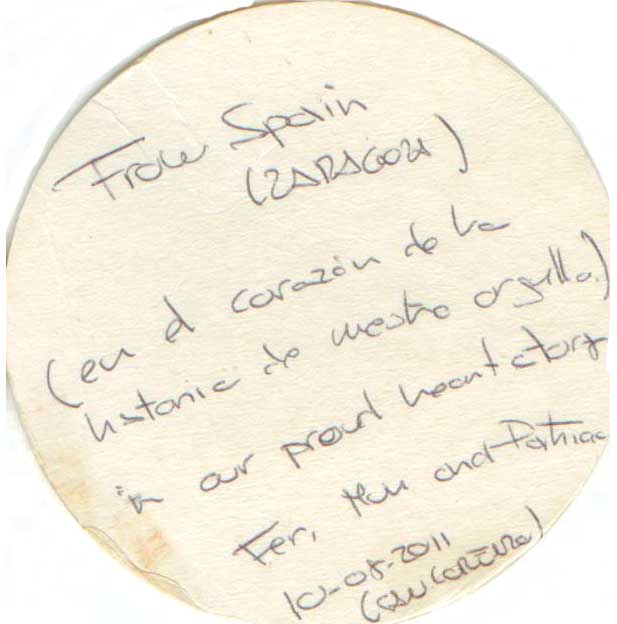 From Spain
(ZARAGOZA)
(en el corazón de la
historia de nuestro orgullo.)
in our proud heart story
Fer, and
10-08-2011
(SAN LORENZO)